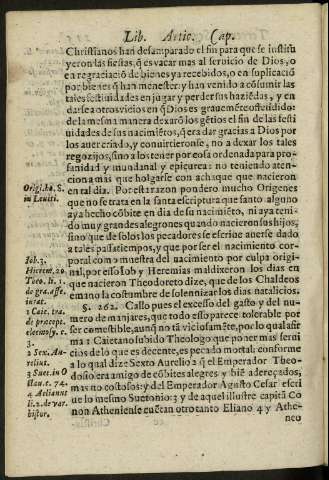 Lib. Artic. Cap.
Christianos han desamparado el fin para que se institu
yeron las fiestas, q̃ es vacar mas al seruicio de Dios, o
en regraciaciõ de bienes ya recebidos, o en suplicaciõ
por bienes q̃ han menester: y han venido a cõsumir las
tales festiuidades en jugar y perder sus haziẽdas, y en
darse a otros vicios en q̃ Dios es grauemẽte ofendido:
de la mesma manera dexarõ los gẽtios el fin de las festi
uidades de sus nacimiẽtos, q̃ era dar gracias a Dios por
los auer criado, y conuirtieronse, no a dexar los tales
regozijos, sino a los tener por cosa ordenada para pro-
fanidad y mundanal y epicurea: no teniendo atten-
cion a mas que holgarse con achaque que nacieron
en tal dia. Por esta razon pondero mucho Origenes
que no se trata en la santa escriptura que santo alguno
aya hecho cõbite en dia de su nacimiẽto, ni aya teni-
do muy grandes alegrones quando nacieron sus hijos;
sino que de solos los pecadores se refiere auerse dado
a tales passatiempos, y que por ser el nacimiento cor-
poral como muestra del nacimiento por culpa origi-
nal, por esso Iob y Heremias maldixeron los dias en
que nacieron Theodoreto dize, que de los Chaldeos
emano la costumbre de solennizar los dias natalicios.
§. 262. Callo pues el excesso del gasto y del nu-
mero de manjares, que todo esso parece tolerable por
ser comestible, aunq̃ no tã vicio samẽte, por lo qual afir
ma 1 Caietano subido Theologo que poner mas serui
cios delo que es decente, es pecado mortal: conforme
a lo qual dize Sexto Aurelio 2 q̃ el Emperador Theo-
dosio era amigo de cõbites alegres y biẽ adereçados,
mas no costosos: y del Emperador Agusto Cesar escri
ue lo mesmo Suetonio: 3 y de aquel illustre capitã Co
non Atheniense cuẽtan otro tanto Eliano 4 y Athe-
neo
Orig. ho. 8.
in Leuiti.
Iob. 3.
Hierem. 20.
Theo. li. 1.
de græ. affe.
curat.
1 Caie. tra.
de præcept.
eleemosy. c.
3.
2 Sex. Au-
relius.
3 Suet. in O
ctau. c. 74.
4 Aelianus
li. 2. de var.
histor.